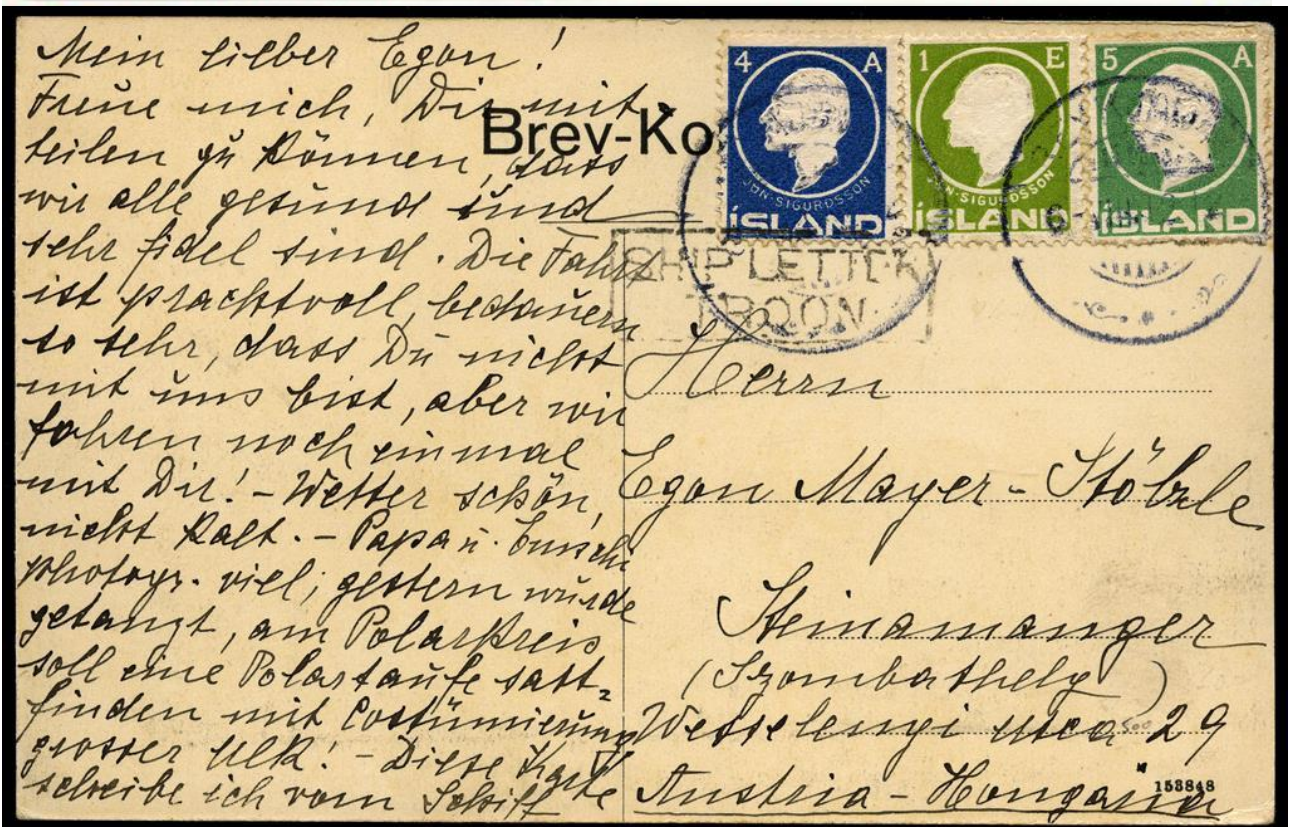 Mein lieber Egon!
Freue mich, Dir mit-
teilen zu können, dass
wir alle gesund und
sehr fidel sind. Die Fahrt
ist prachtvoll, bedauern
so sehr, dass Du nicht
mit uns bist, aber wir
fahren noch einmal
mit Dir! - Wetter schön,
nicht kalt. - Papa u.
photogr. viel; gestern wurde
getanzt, am Polarkreis
soll eine Polartaufe satt=
finden mit Costümierung
grosser Ulk! - Diese Karte
schreibe ich vom Schiff
Brev-Ko
4 A
JÓN·SIGURÐSSON
ÍSLAND
1 E
JÓN·SIGURÐSSON
ÍSLAND
5 A
ÍSLAND
SHIP LETTER
TROON
Herrn
Egon Mayer-Stölzle
Steinamanger
(Szombathely)
Wesselenyi utca 29
Austria-Hongária
153848